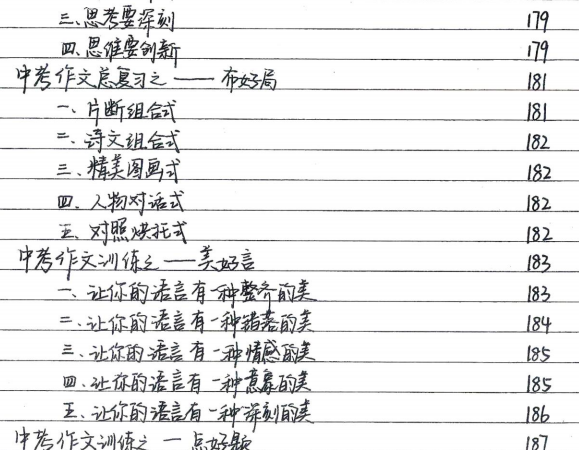 三.思考要深刻 179
四.思维要创新 179
中考作文总复习之——布好局 181
一、片断组合式 181
二、诗文组合式 182
三、精美图画式 182
四、人物对话式 182
五、对照烘托式 182
中考作文训练之——美好言 183
一、让你的语言有一种整齐的美 183
二、让你的语言有一种错落的美 184
三、让你的语言有一种情感的美 185
四、让你的语言有一种意象的美 185
五、让你的语言有一种深刻的美 186
中考作文训练之—点好题 187